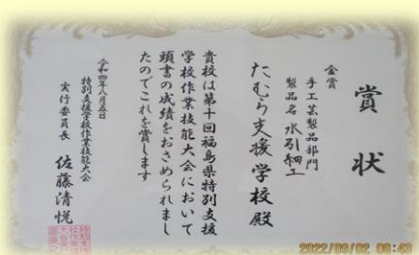 賞状
金賞
手工芸製品部門
製品名 水引細工
たむら支援学校殿
貴校は第十回福島県特別支援
学校作業技能大会において
頭書の成績をおさめられまし
たのでこれを賞します
令和四年八月五日
特別支援学校作業技能大会
実行委員長 佐藤清悦
2022/09/02 08:43